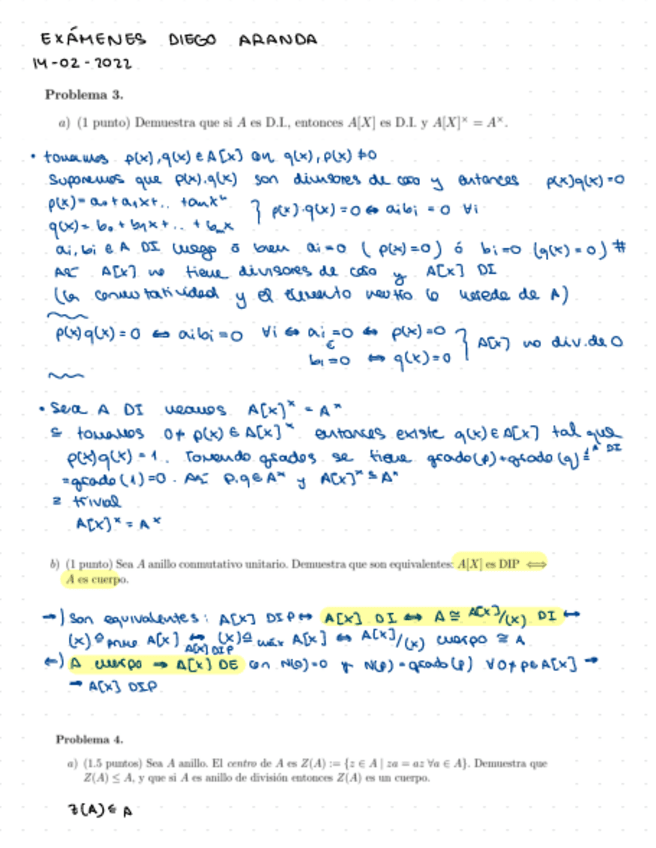 EXÁMENES DIEGO ARANDA
14-02-2022
Problema 3.
a) (1 punto) Demuestra que si A es D.I., entonces A[X] es D.I. y A[X]ˣ = Aˣ.
• tomamos p(x), q(x) ∈ A[x] con q(x), p(x) ≠ 0
Suponemos que p(x)·q(x) son divisores de cero y entonces p(x)q(x)=0
p(x) = a₀+a₁x+.. + aₙxⁿ
q(x) = b₀ + b₁x+.. + bₙx } p(x)·q(x) = 0 ⇔ aᵢbᵢ = 0 ∀i
aᵢ, bᵢ ∈ A DI luego o bien aᵢ=0 (p(x)=0) ó bᵢ=0 (q(x)=0) #
Así A[x] no tiene divisores de cero y A[x] DI
(la conmutatividad y el elemento neutro lo hereda de A)
p(x)q(x)=0 ⇔ aᵢbᵢ=0 ∀i ⇔ aᵢ=0 ⇔ p(x)=0
bᵢ=0 ⇔ q(x)=0 } A[x] no div. de 0
• Sea A DI veamos A[x]ˣ = Aˣ
⊆ tomamos 0≠ p(x) ∈ A[x]ˣ entonces existe q(x) ∈ A[x] tal que
p(x)q(x) = 1. Tomando grados se tiene grado(p)+grado(q) = A DI
=grado(1)=0. Así p,q∈Aˣ y A[x]ˣ ⊆ Aˣ
⊇ trivial
A[x]ˣ = Aˣ
b) (1 punto) Sea A anillo conmutativo unitario. Demuestra que son equivalentes: A[X] es DIP ⟺
A es cuerpo.
→) Son equivalentes: A[x] DIP ↔ A[x] DI ↔ A ≅ A[x]/(x) DI ↔
(x) primo A[x] ↔ A[x] DIP (x) max A[x] ↔ A[x]/(x) cuerpo ≅ A
←) A cuerpo → A[x] DE con N(0)=0 y N(p)=grado(p) ∀0≠p∈A[x] →
→ A[x] DIP
Problema 4.
a) (1.5 puntos) Sea A anillo. El centro de A es Z(A) := {z ∈ A | za = az ∀a ∈ A}. Demuestra que
Z(A) ≤ A, y que si A es anillo de división entonces Z(A) es un cuerpo.
Z(A) ≤ A